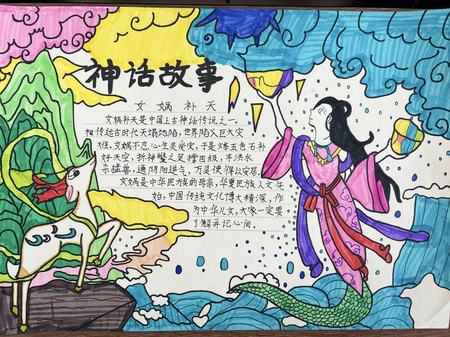 神话故事
女娲补天
女娲补天是中国上古神话传说之一,
相传远古时代天塌地陷,世界陷入巨大灾
难,女娲不忍心生灵受灾,于是炼五色石补
好天空,折神鳖之足撑四极,平洪水
杀猛兽,通阴阳逆气,万灵使得以安居.
女娲是中华民族的母亲,华夏民族人文先
始,中国传统文化博大精深,作
为中华儿女,大家一定要
了解并记心间.